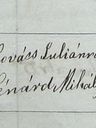 Kovács Juliánna
Lénárd Mihály